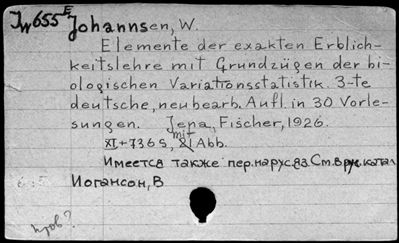 Iw655E Johannsen, W.
Elemente der exakten Erblich-
keitslehre mit Grundzügen der bi-
ologischen Variationsstatistik. 3-te
deutsche, neubearb. Aufl. in 30 Vorle-
sungen. Jena, Fischer, 1926.
XI+736 S, mit Abb.
Имеется также пер. на рус. яз См. в рус. катал
Иогансон, В
пров?